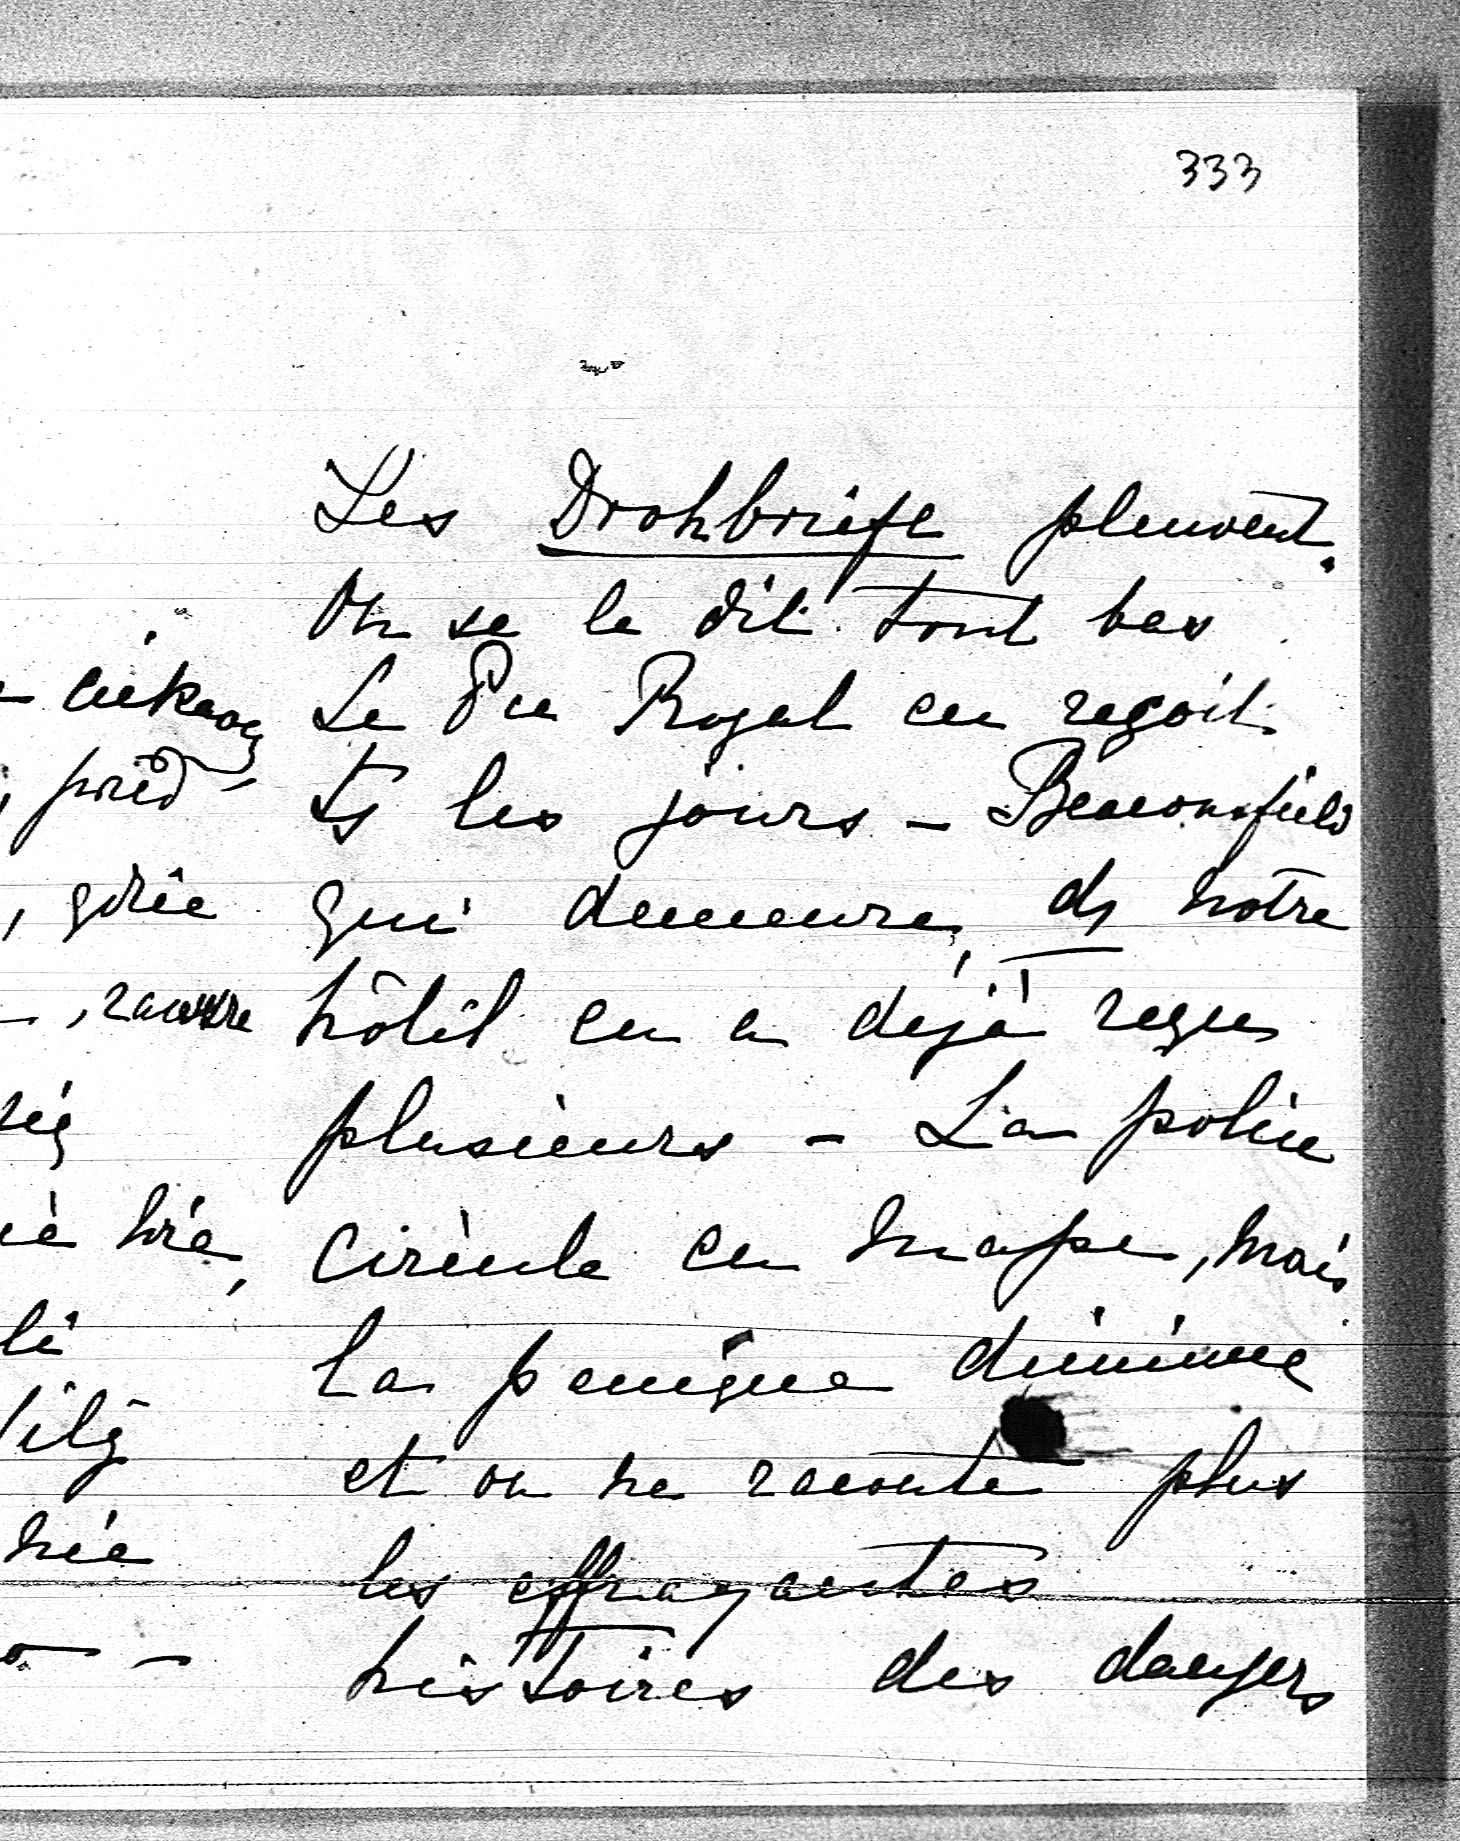 333
Les Drohbriefe pleuvent.
On se le dit tout bas
Le Pce Royal en reçoit
ts les jours – Beaconsfield
qui demeure, ds notre
hôtel en a déjà reçu
plusieurs – La police
circule en masse, mais
la panique diminue
et on ne raconte plus
les effrayantes
histoires des dangers